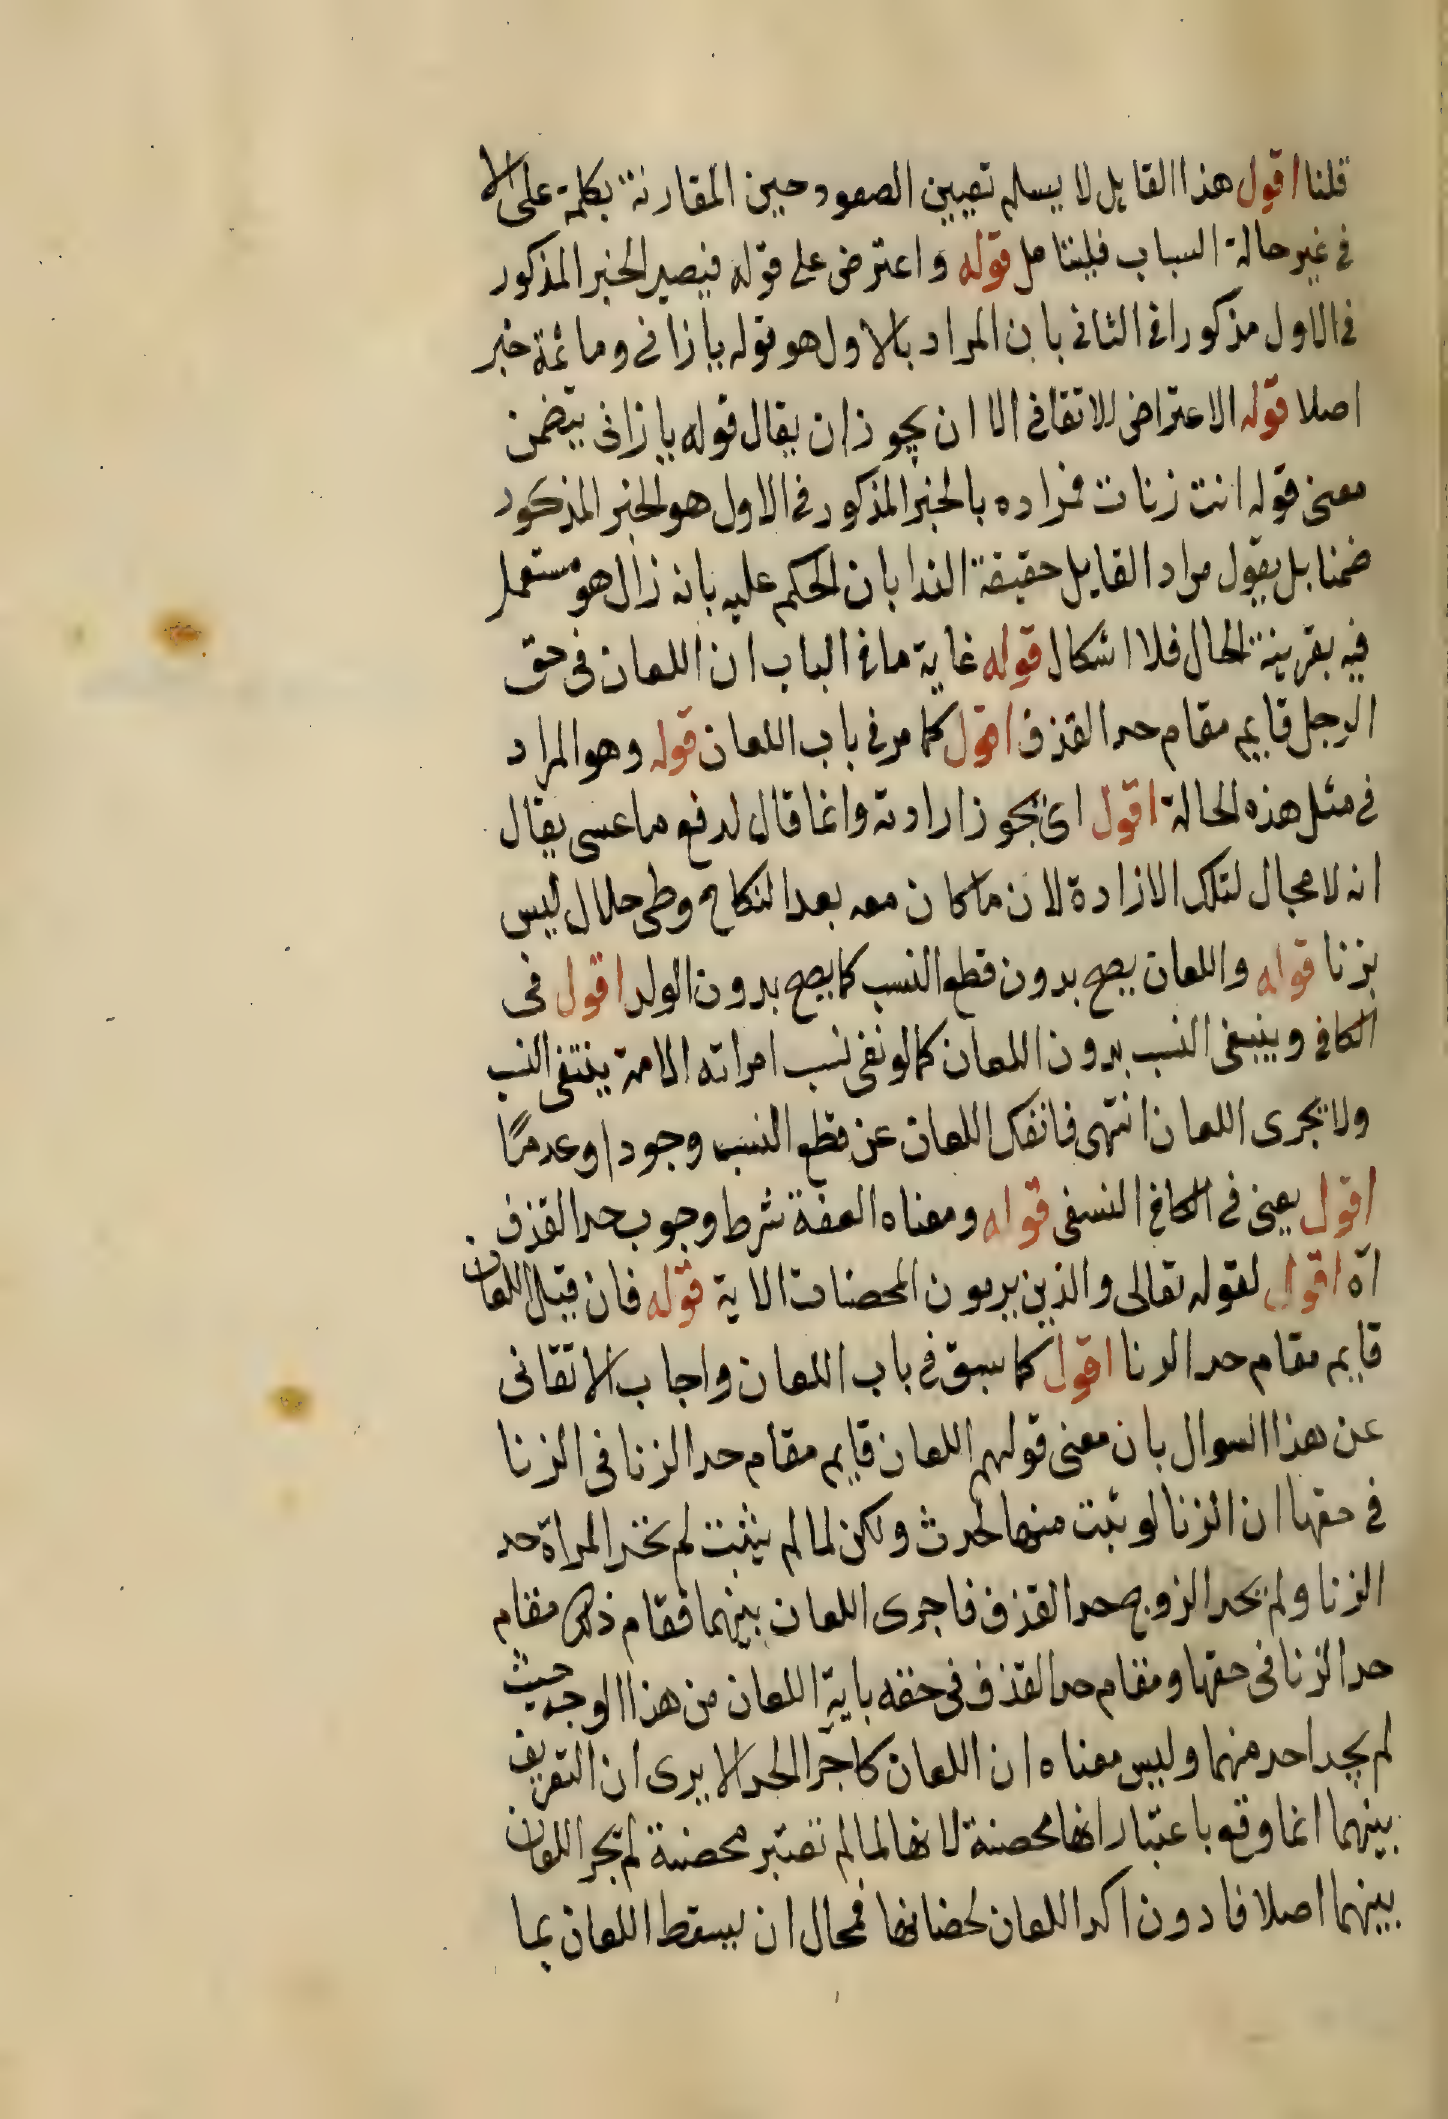 قلنا اقول هذا القايل لا يسلم تعيين الصعود حين المقارنة بكلمة على الا
في غير حالة السباب فليتامل قوله واعترض على قوله فيصير الخبر المذكور
في الاول مذكورا في الثاني بان المراد بالاول هو قوله يا زاني وما ثمة خبر
اصلا قوله الاعتراض للاتقاني الا ان يجوز ان يقال قوله يا زاني يتضمن
معنى قوله انت زنات فمراده بالخبر المذكور في الاول هو الخبر المذكور
ضمنا بل يقول مراد القايل حقيقة الندا بان الحكم عليه بانه زال هو مستعمل
فيه بقرينة الحال فلا اشكال قوله غاية ما في الباب ان اللعان في حق
الرجل قايم مقام حد القذف اقول كما مر في باب اللعان قوله وهو المراد
في مثل هذه الحالة اقول اى يجوز ارادته وانما قال لدفع ما عسى يقال
انه لا مجال لتلك الارادة لان ما كان معه بعد النكاح وطى حلال ليس
بزنا قوله واللعان يصح بدون قطع النسب كما يصح بدون الولد اقول في
الكافي وينبغى النسب بدون اللعان كما لو نفى نسب امراته الامة ينتفى النسب
ولا يجرى اللعان انتهى فانفك اللعان عن قطع النسب وجودا وعدمًا
اقول يعنى في الكافي النسفى قوله ومعناه العفة شرط وجوب حد القذف
اه اقول لقوله تعالى والذين يرمون المحصنات الاية قوله فان قيل اللعان
قايم مقام حد الزنا اقول كما سبق في باب اللعان واجاب الاتقانى
عن هذا السوال بان معنى قولهم اللعان قايم مقام حد الزنا في الزنا
في حقها ان الزنا لو ثبت منها لحدث ولكن لما لم يثبت لم تحد المراة حد
الزنا ولم يحد الزوج حد القذف فاجرى اللعان بينهما فقام ذلك مقام
حد الزنا في حقها ومقام حد القذف في حقه باية اللعان من هذا الوجه حيث
لم يجد احد منهما وليس معناه ان اللعان كاجرا الحد الا يرى ان التفريق
بينهما انما وقع باعتبار انها محصنة لانها لما لم تعتبر محصنة لم يجر اللعان
بينهما اصلا فادون اكد اللعان لحضانها فمحال ان يسقط اللعان بما